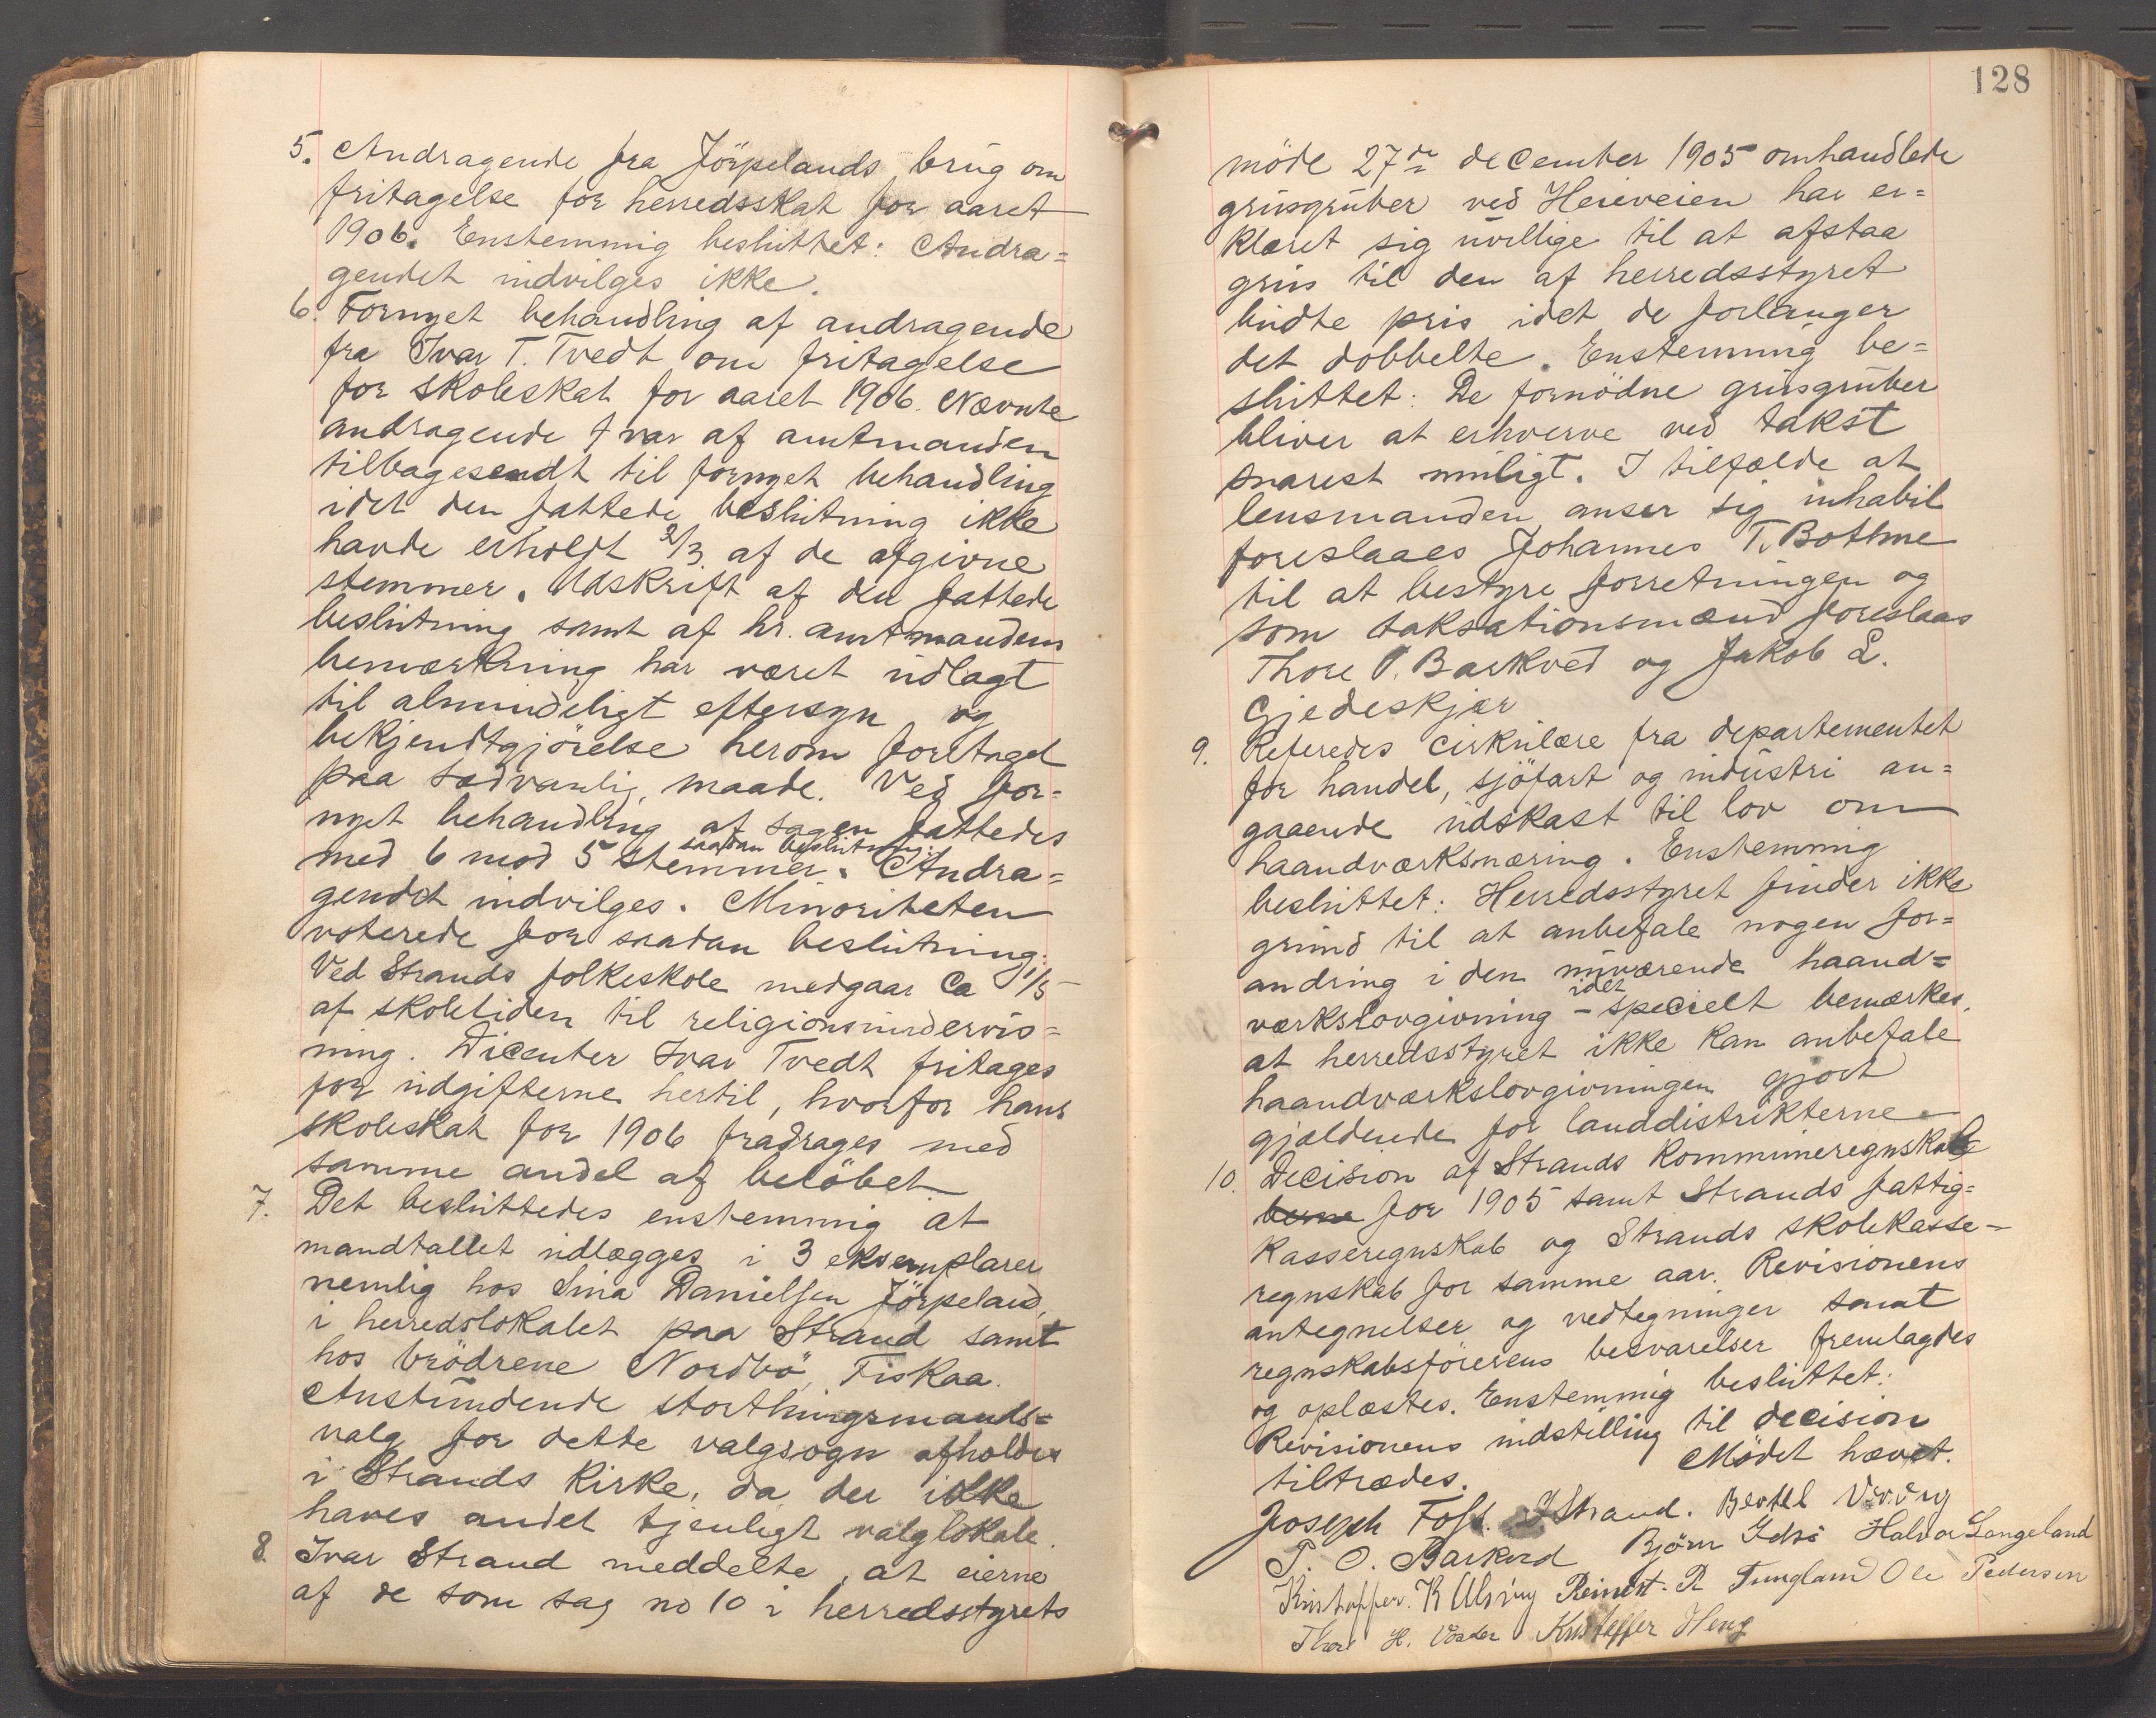 5. Andragende fra Jörpelands brug om
fritagelse for herredsskat for aaret
1906. Enstemmig besluttet: Andra=
gendet indvilges ikke.
6. Fornyet behandling af andragende
fra Ivar T. Tvedt om fritagelse
for skoleskat for aaret 1906. Nævnte
andragende var af amtmanden
tilbagesendt til fornyet behandling
idet den fattede beslutning ikke
havde erholdt 2/3 af de afgivne
stemmer. Udskrift af den fattede
beslutning samt af hr. amtmandens
bemærkning har været udlagt
til almindeligt eftersyn og
bekjendtgjörelse herom foretaget
paa sædvanlig maade. Ved for=
nyet behandling af sagen fattedes
saadan beslutning:
med 6 mod 5 stemmer. Andra=
gendet indvilges. Minoriteten
voterede for saadan beslutning:
Ved Strands folkeskole medgaar ca 1/5
af skoletiden til religionsundervis=
ning. Dicenter Ivar Tvedt fritages
for udgifterne hertil, hvorfor hans
skoleskat for 1906 fradrages med
samme andel af belöbet.
7. Det besluttedes enstemmig at
mandtallet udlægges i 3 eksemplarer
nemlig hos Sina Danielsen Jörpeland,
i herredslokalet paa Strand samt
hos brödrene Nordbö, Fiskaa.
Anstundende storthingsmands=
valg for dette valgsogn afholdes
i Strands Kirke, da der ikke
haves andet tjenligt valglokale.
8. Ivar Strand meddelte, at eierne
af de som sag no 10 i herredsstyrets
128
möde 27de december 1905 omhandlede
grusgruber ved Heieveien har er=
klæret sig uvillige til at afstaa
grus til den af herredsstyret
budte pris idet de forlanger
det dobbelte. Enstemmig be=
sluttet: De fornödne grusgruber
bliver at erhverve ved takst
snarest muligt. I tilfælde at
lensmanden anser sig inhabil
foreslaaes Johannes T. Bothne
til at bestyre forretningen og
som taksationsmænd foreslaas
Thore P. Barkved og Jakob L.
Gjedeskjær
9. Referedes cirkulære fra departementet
for handel, sjöfart og industri an=
gaaende udskast til lov om
haandværksnæring. Enstemmig
besluttet: Herredsstyret finder ikke
grund til at anbefale nogen for=
andring i den nuværende haand=
idet
værkslovgivning - specielt bemærkes.
at herredsstyret ikke kan anbefale
haandværkslovgivningen gjort
gjældende for landdistrikterne.
10. Decision af Strands kommuneregnskab
berne for 1905 samt Strands fattig=
kasseregnskab og Strands skolekasse-
regnskab for samme aar. Revisionens
antegnelser og vedtegninger samt
regnskabsförerens besvarelser fremlagdes
og oplæstes. Enstemmig besluttet:
Revisionens indstilling til decision
tiltrædes. Mödet hævet.
Joseph Foss. I Strand. Bertel
T. O. Barkved Björn Idsö Halvor Langeland
Kristoffer. K Reinert. R Tungland Ole Pedersen
Thore H. Kristoffer Heng